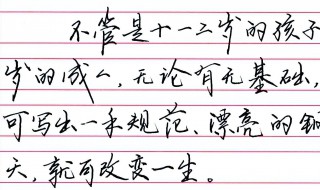 不管是十一二岁的孩子
岁的成人,无论有无基础,
可写出一手规范、漂亮的钢
天,就可改变一生。